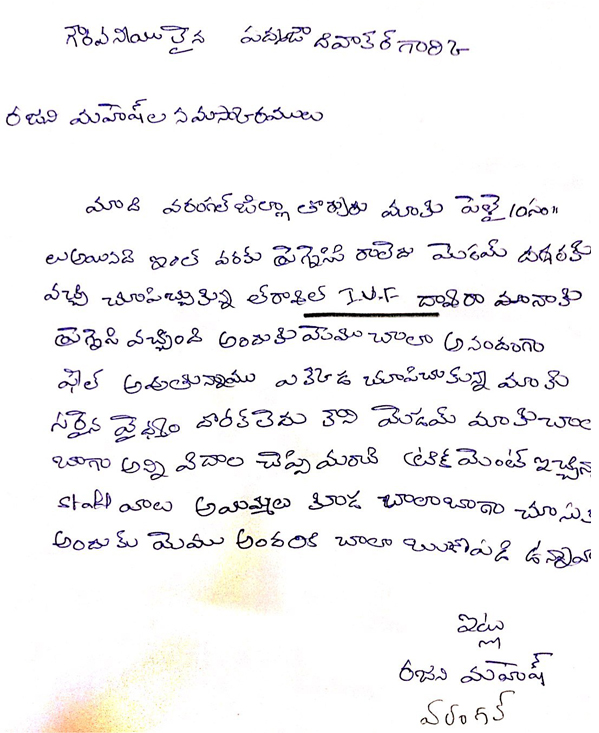 గౌరవనీయులైన పద్మజా దివాకర్ గారికి
రజని మహేష్ ల నమస్కారములు
మాది వరంగల్ జిల్లా మాకు పెళ్లై 10సం॥
లుఅయినది ఇంత వరకు ప్రెగ్నెన్సి రాలేదు మెడమ్ దగ్గరకు
వచ్చి చూపిచ్చుకున్న తర్వాత I.V.F ద్వారా మానాకు
ప్రెగ్నెసి వచ్చింది అందుకు మెము చాలా అనందంగా
ఫీల్ అవుతున్నాము ఎక్కడ చూపిచుకున్నా మాకు
సరైన వైధ్యం దొరకలేదు కాని మెడమ్ మాకు చాల
బాగా అన్ని విదాల చెప్పి మరాజి ట్రీక్ మెంట్ ఇచ్చిన
staff వాలు అయిమ్మాలు కూడ చాలాబాగా చూసు
అందుకు మెము అందరికి చాలా ఋణపడి ఉన్నా
ఇట్లు
రజని మహేష్
వరంగల్